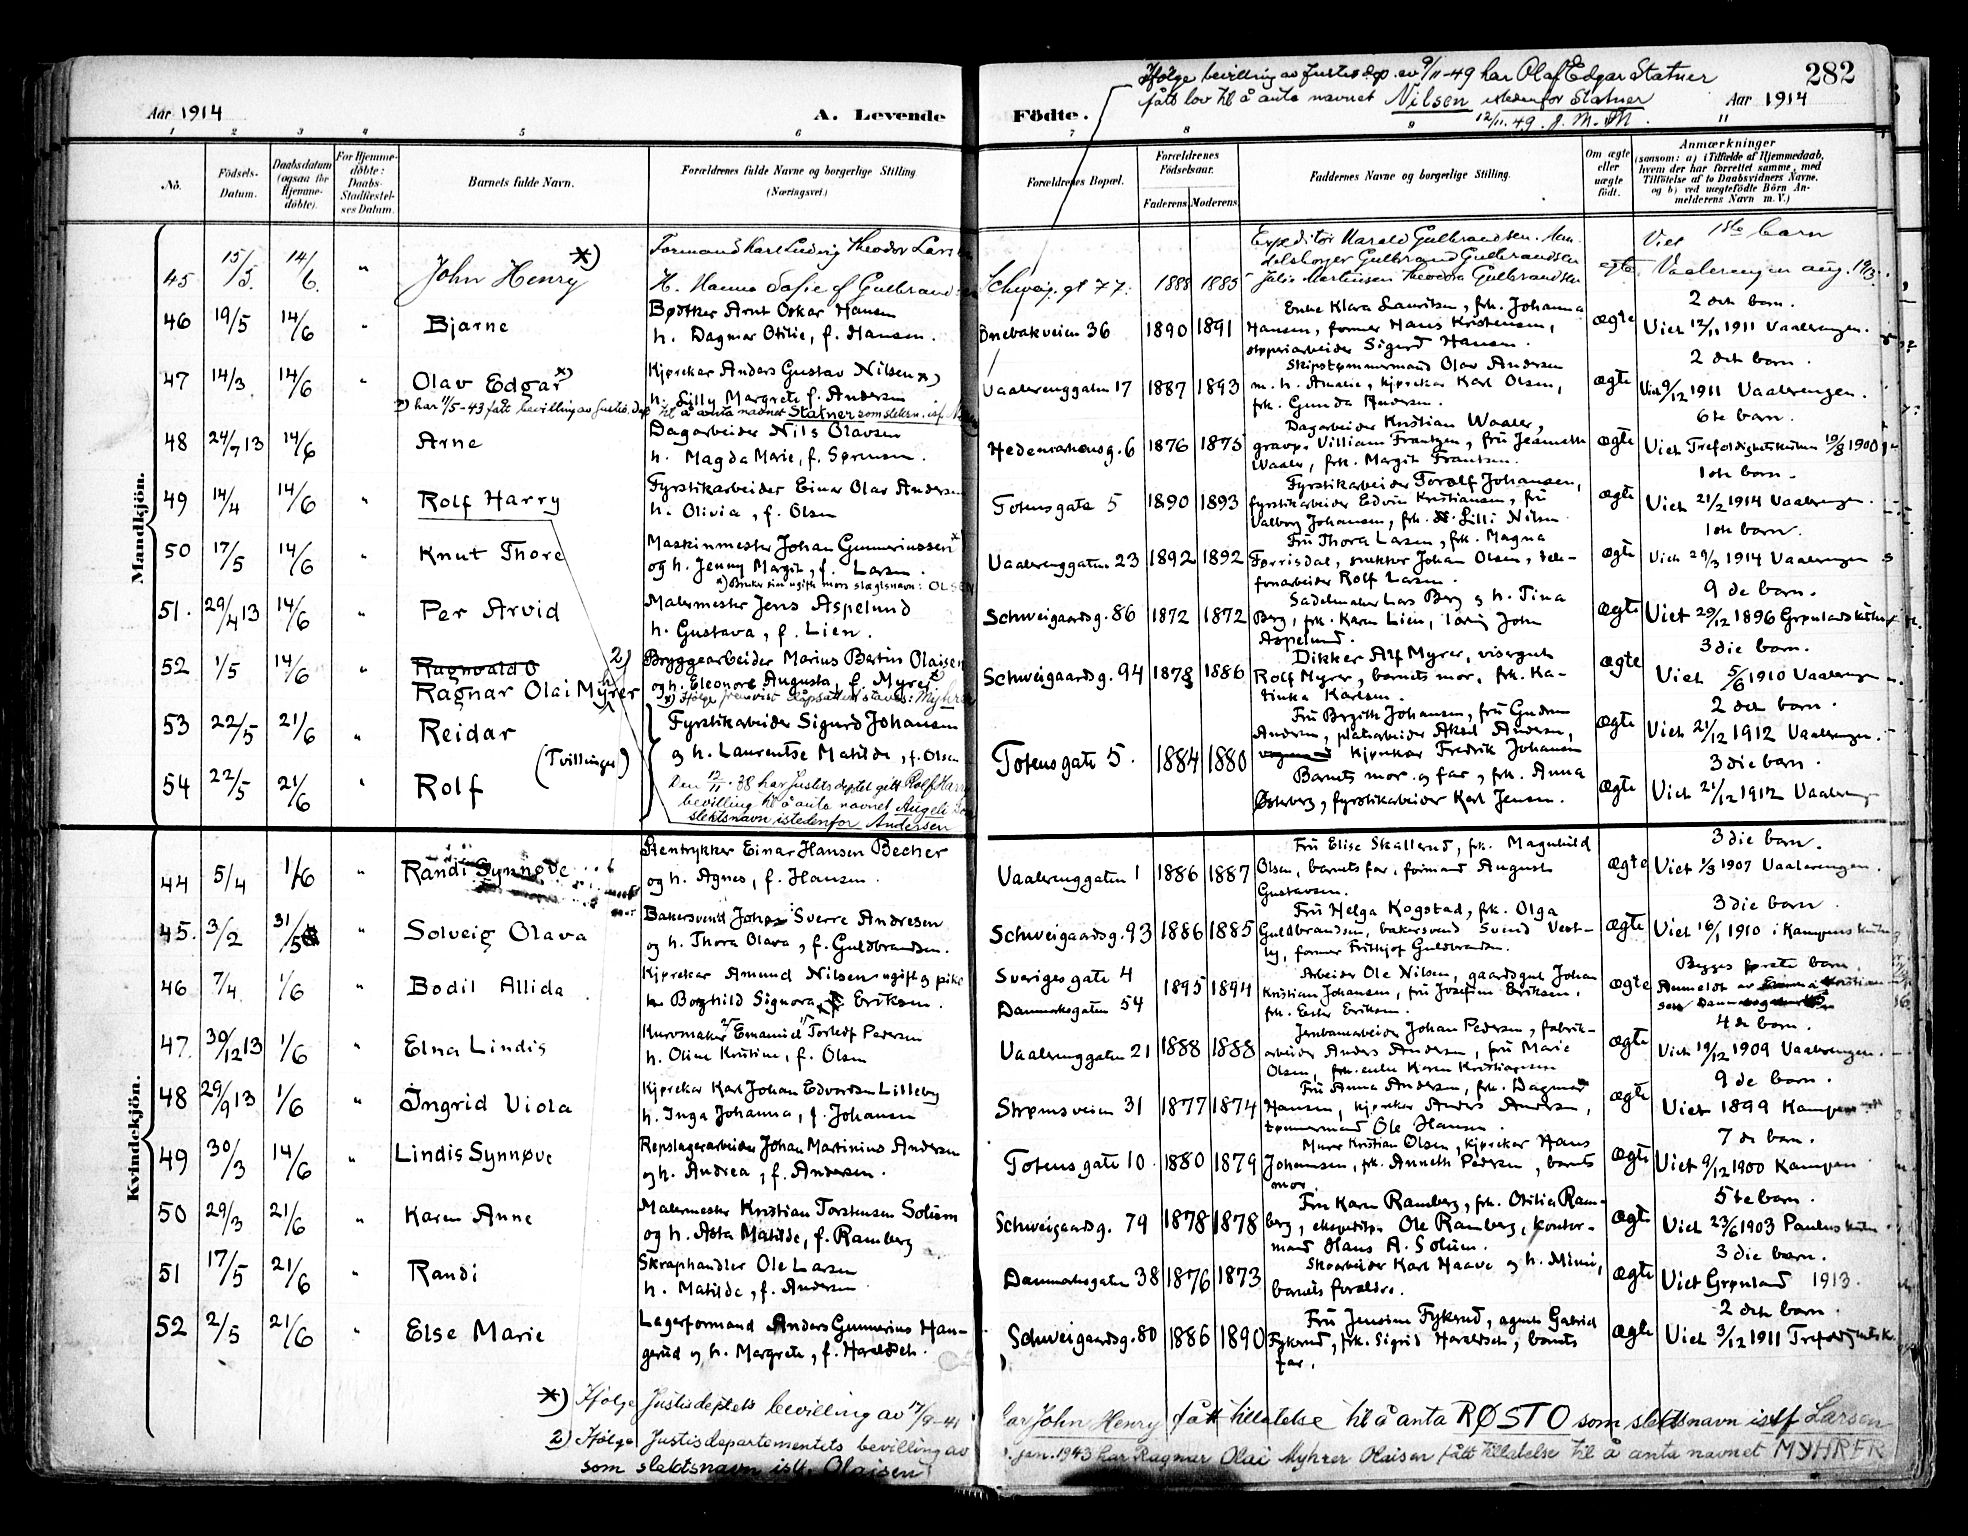 Ifølge bevilling av Justisdep. av 9/11-49 har Olaf Edgar Statner
fått lov til å anta navnet Nilsen istedenfor Statner
12/11.49. J. M. M.
282
Aar 1914
A. Levende
Födte.
Aar 1914
1 2 3 4 5 6 7 8 9 11
No.
Födsels-
Datum.
Daabsdatum
(ogsaa for
Hjemme-
döbte).
For Hjemme-
döbte:
Daabs-
Stadfæstel-
ses Datum.
Barnets fulde Navn.
Forældrenes fulde Navne og borgerlige Stilling
(Næringsvei.)
Forældrenes Bopæl.
Forældrenes
Födselsaar.
Faderens. Moderens.
Faddernes Navne og borgerlige Stilling.
Om ægte
eller
uægte
födt.
Anmærkninger
(saasom: a) i Tilfælde af Hjemmedaab,
hvem der har forrettet samme, med
Tilföielse af to Daabsvidners Navne,
og b) ved uægtefödte Börn An-
melderens Navn m. V.)
Mandkjön.
45 15/5. 14/6. " John Henry *)
Formand Karl Ludvig Theodor Larsen
H. Hanna Sofie f Gulbrandsen
Schweig. gt 77. 1888 1885
Expeditør Harald Gulbrandsen. Han-
delsborger Gulbrand Gulbrandsen
Julie Martinsen Theodora Gulbrandsen
ægte
1ste barn
Viet Vaalerengen aug. 1913.
46 19/5 14/6 " Bjarne
Bødtker Arnt Oskar Hansen
h. Dagmar Otilie, f. Hansen.
Enebakveien 36 1890 1891
Enke Klara Lauritsen, frk. Johanna
Hansen, former Hans Kristensen,
støperiarbeider Sigurd Hansen.
ægte
2 det barn.
Viet 12/11 1911 Vaalerengen.
47 14/3. 14/6 " Olav Edgar *)
Kjørekar Anders Gustav Nilsen *)
h. Lilly Margrete f. Andersen
*) har 11/5-43 fått bevilling av Justis.dep til å anta navnet Statner som slektn. isf. Nilsen
Vaalerenggaten 17 1887 1893
Skipstømmermand Olav Andersen
m. h. Amalie, kjørekar Karl Olsen,
frk. Gunda Andersen.
ægte
2 det barn.
Viet 9/12 1911 Vaalerengen.
48 24/7 13 14/6 " Arne
Dagarbeider Nils Olavsen
h. Magda Marie, f. Sørensen.
Hedemarkensg. 6 1876 1875
Dagarbeider Kristian Waaler,
gravør Villiam Frantzen, fru Jeanette
Waaler, frk. Margit Frantzen.
ægte
6te barn.
Viet Trefoldighetskirken 19/8 1900
49 14/4 14/6 " Rolf Harry
Fyrstikarbeider Einar Olav Andersen
h. Olivia, f. Olsen
Totensgate 5 1890 1893
Fyrstikarbeider Toralf Johansen,
fyrstikarbeider Edvin Kristiansen, fru
Valborg Johansen, frk. Lilli Nilsen.
ægte
1ste barn.
Viet 21/2 1914 Vaalerengen.
50 17/5 14/6 " Knut Thore
Maskinmester Johan Gunneriussen x
og h. Jenny Margit, f. Larsen.
x) Bruker sin ugifte mors slægtsnavn: OLSEN
Vaalerenggaten 23 1892 1892
Fru Thora Larsen, frk. Magna
Førrisdal, snekker Johan Olsen, tele-
fonarbeider Rolf Larsen.
ægte
1ste barn.
Viet 29/3 1914 Vaalerengen
51. 29/4 13 14/6 " Per Arvid
Malermester Jens Aspelund
h. Gustava, f. Lien.
Schweigaardsg. 86 1872 1872
Sadelmaker Lars Berg og h. Tina
Berg, frk. Karen Lien, John
Aspelund.
ægte
9 de barn.
Viet 29/12 1896 Grønlands kirke
52 1/5 14/6 " Ragnvald O
Ragnar Olai Myhrer 2)
Bryggearbeider Marius Bertin Olaisen
og h. Eleonore Augusta, f. Myrer x)
x) Ifølge fremvist dåpsattest staves: Myhrer
Schweigaardsg. 94 1878 1886
Dikker Alf Myrer, visergut
Rolf Myrer, barnets mor, frk. Ka-
tinka Karlsen.
ægte
3 die barn.
Viet 5/6 1910 Vaalerengen
53 22/5 21/6 " Reidar
(Tvillinger)
Fyrstikarbeider Sigurd Johansen
og h. Laurentse Matilde, f. Olsen
Totensgate 5. 1884 1880
Fru Birgith Johansen, fru Gudrun
Andersen, platearbeider Aksel Andersen,
kjørekar Fredrik Johansen
ægte
2 det barn.
Viet 21/12 1912 Vaalerengen.
54 22/5 21/6 " Rolf
Den 12/11.38 har Justisdeptet gitt Rolf Harry
bevilling til å anta navnet Angell som
slektsnavn istedenfor Andersen
Barnets mor og far, frk. Anna
Østerberg, fyrstikarbeider Karl Jensen.
ægte
3 die barn.
Viet 21/12 1912 Vaalerengen
Kvindekjön.
44 5/4 1/6 " Randi Synnøve
Stentrykker Einar Hansen Becher
og h. Agnes, f. Hansen.
Vaalerenggaten 1 1886 1887
Fru Elise Skallerud, frk. Magnhild
Olsen, barnets far, formand August
Gustavsen.
ægte
3 die barn.
Viet 1/3 1907 Vaalerengen.
45. 3/2 31/5 " Solveig Olava
Bakersvend Johan Sverre Andresen
og h. Thora Olava, f. Guldbrandsen.
Schweigaardsg. 93 1886 1885
Fru Helga Kogstad, frk. Olga
Guldbrandsen, bakersvend Svend Vest-
by, former Frithjof Guldbrandsen.
ægte
3 die barn.
Viet 16/1 1910 i Kampens kirke
46 7/4 1/6 " Bodil Allida
Kjørekar Amund Nilsen ugift og pike
Borghild Signora Eriksen.
Sverigesgate 4
Danmarksgaten 54
1895 1894
Arbeider Ole Nilsen, gaardsgut Johan
Kristian Johansen, fru Josefine Eriksen,
frk. Ester Eriksen.
ægte
Begges første barn.
Anmeldt av Kristian-
sen
47. 30/12 13 1/6 " Elna Lindis
Kurvmaker Emanuel Torleif Pedersen
h. Oline Kristine, f. Olsen
Vaalerenggaten 21 1888 1888
Jernbanearbeider Johan Pedersen, fabrik-
arbeider Anders Andersen, fru Marie
Olsen, frk. enke Karen Kristiansen
ægte
4 de barn.
Viet 19/12 1909 Vaalerengen.
48 29/9 13 1/6 " Ingrid Viola
Kjørekar Karl Johan Edvardsen Lilleby
h. Inga Johanna, f. Johansen
Strømsveien 31 1877 1874
Fru Anna Andersen, frk. Dagmar
Hansen, kjørekar Anders Andersen,
tømmermand Ole Hansen.
ægte
9 de barn.
Viet 1899 Kampen
49 30/3 14/6 " Lindis Synnøve
Repslagerarbeider Johan Martinius Andersen
og h. Andrea, f. Andersen.
Totensgate 10. 1880 1879
Murer Kristian Olsen, kjørekar Hans
Johansen, frk. Anneth Pedersen, barnets
mor.
ægte
7 de barn.
Viet 9/12 1900 Kampen.
50 29/3 21/6 " Karen Anne
Malermester Kristian Torstensen Solum
og h. Asta Matilde, f. Ramberg
Schweigaardsg. 79 1878 1878
Fru Karen Ramberg, frk. Otilia Ram-
berg, ekspeditør Ole Ramberg, kontor-
mand Hans A. Solum.
ægte
5 te barn.
Viet 23/6 1903 Paulus kirke
51 17/5 21/6 " Randi
Skraphandler Ole Larsen
h. Matilde, f. Andersen
Danmarksgaten 38 1876 1873
Skoarbeider Karl Haave og h. Mimi,
barnets forældre.
ægte
3 die barn.
Viet Grønland 1913.
52 2/5 21/6 " Else Marie
Lagerformand Anders Gunnerius Han-
gerud og h. Margrete, f. Haraldsth.
Schweigaardsg. 80 1886 1890
Fru Jensine Fykerud, agent Gabriel
Fykerud, frk. Sigrid Haraldseth, barnets
far.
ægte
2 det barn.
Viet 3/12 1911 Trefoldighetsk.
*) Ifølge Justisdeptets bevilling av 17/9-41 har John Henry fått tillatelse til å anta RØSTO som slektsnavn istf Larsen
2) Ifølge Justisdepartementets bevilling av . jan. 1943 har Ragnar Olai Myhrer Olaisen fått tillatelse til å anta navnet MYHRER
som slektsnavn istf. Olaisen